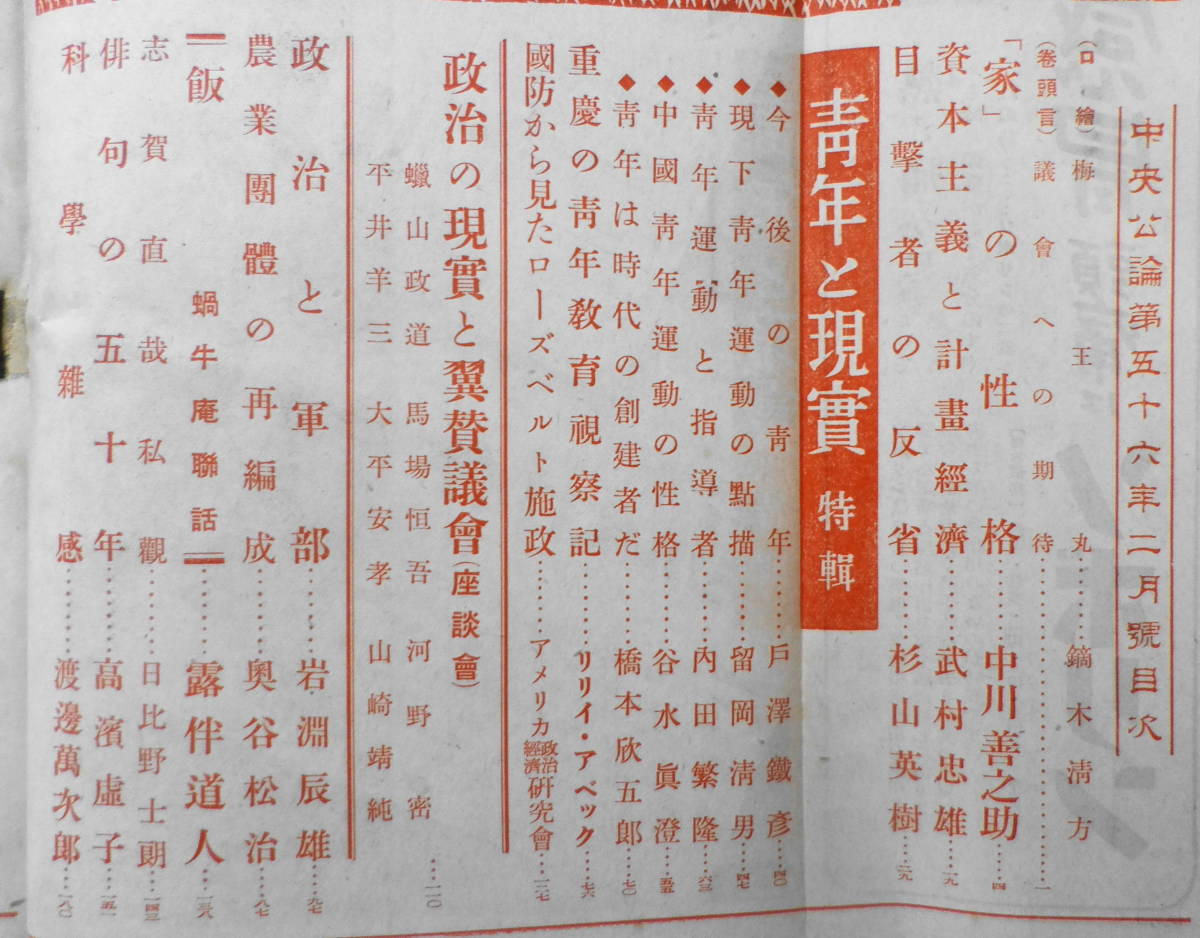 中央公論第五十六年二月號目次
(口繪)梅王丸……鏑木清方
(卷頭言)議會への期待……一
「家」の性格……中川善之助……四
資本主義と計畫經濟……武村忠雄……一九
目擊者の反省……杉山英樹……二九
靑年と現實 特輯
◆今後の靑年……戶澤鐵彥……四〇
◆現下靑年運動の點描……留岡淸男……四七
◆靑年運動と指導者……內田繁隆……六三
◆中國靑年運動の性格……谷水眞澄……五五
◆靑年は時代の創建者だ……橋本欣五郎……七〇
重慶の靑年敎育視察記……リリイ・アベック……七六
國防から見たローズベルト施政……アメリカ政治經濟硏究會……一二七
政治の現實と翼贊議會(座談會)
蠟山政道 馬場恒吾 河野密
平井羊三 大平安孝 山崎靖純
……一一〇
政治と軍部……岩淵辰雄……九七
農業團體の再編成……奧谷松治……八七
飯 蝸牛庵聯話……露伴道人……一三六
志賀直哉私觀……日比野士朗……一四三
俳句の五十年……高濱虛子……一五一
科學雜感……渡邊萬次郎……一八〇